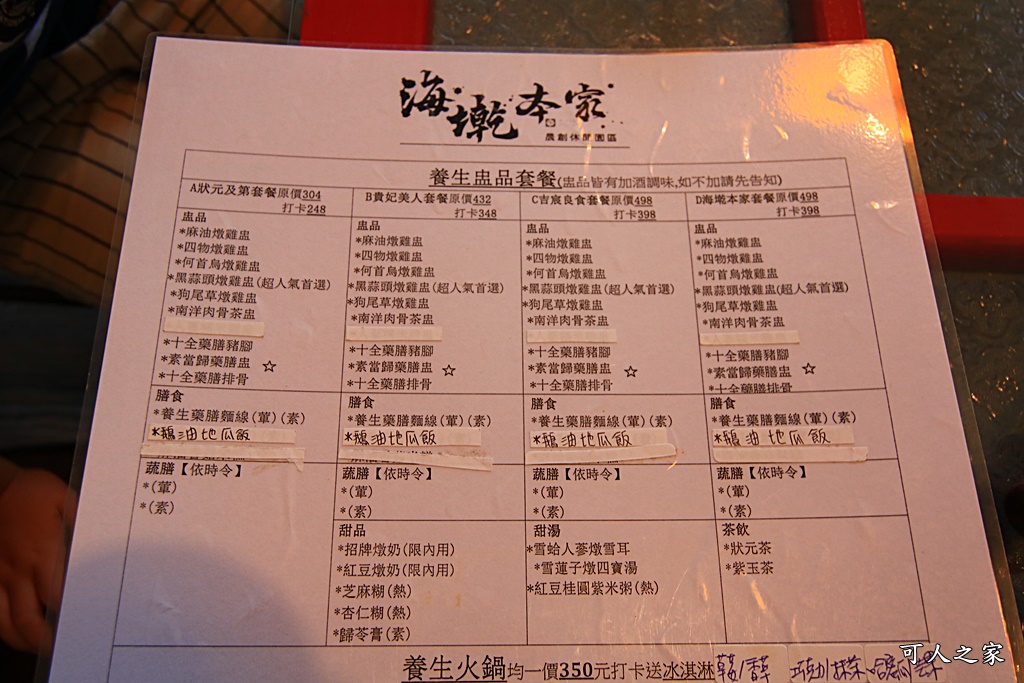 海墘本家
農創休閒園區
養生盅品套餐(盅品皆有加酒調味,如不加請先告知)
A狀元及第套餐原價304
打卡248
盅品
*麻油燉雞盅
*四物燉雞盅
*何首烏燉雞盅
*黑蒜頭燉雞盅(超人氣首選)
*狗尾草燉雞盅
*南洋肉骨茶盅
*十全藥膳豬腳
*素當歸藥膳盅 ☆
*十全藥膳排骨
膳食
*養生藥膳麵線(葷)(素)
*鵝油地瓜飯
蔬膳【依時令】
*(葷)
*(素)
B貴妃美人套餐原價432
打卡348
盅品
*麻油燉雞盅
*四物燉雞盅
*何首烏燉雞盅
*黑蒜頭燉雞盅(超人氣首選)
*狗尾草燉雞盅
*南洋肉骨茶盅
*十全藥膳豬腳
*素當歸藥膳盅 ☆
*十全藥膳排骨
膳食
*養生藥膳麵線(葷)(素)
*鵝油地瓜飯
蔬膳【依時令】
*(葷)
*(素)
甜品
*招牌燉奶(限內用)
*紅豆燉奶(限內用)
*芝麻糊(熱)
*杏仁糊(熱)
*歸苓膏(素)
C吉宸良食套餐原價498
打卡398
盅品
*麻油燉雞盅
*四物燉雞盅
*何首烏燉雞盅
*黑蒜頭燉雞盅(超人氣首選)
*狗尾草燉雞盅
*南洋肉骨茶盅
*十全藥膳豬腳
*素當歸藥膳盅 ☆
*十全藥膳排骨
膳食
*養生藥膳麵線(葷)(素)
*鵝油地瓜飯
蔬膳【依時令】
*(葷)
*(素)
甜湯
*雪蛤人蔘燉雪耳
*雪蓮子燉四寶湯
*紅豆桂圓紫米粥(熱)
D海墘本家套餐原價498
打卡398
盅品
*麻油燉雞盅
*四物燉雞盅
*何首烏燉雞盅
*黑蒜頭燉雞盅(超人氣首選)
*狗尾草燉雞盅
*南洋肉骨茶盅
*十全藥膳豬腳
*素當歸藥膳盅 ☆
*十全藥膳排骨
膳食
*養生藥膳麵線(葷)(素)
*鵝油地瓜飯
蔬膳【依時令】
*(葷)
*(素)
茶飲
*狀元茶
*紫玉茶
養生火鍋均一價350元打卡送冰淇淋
可人之家